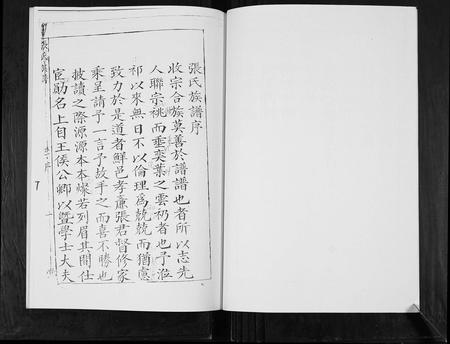 張氏族譜序
收宗合族莫善於譜譜也者所以志先
人聯宗祧而垂奕葉之雲礽者也予涖
祁以來無日不以倫理為兢兢而猶慮
致力於是道者鮮邑孝廉張君督修家
乘呈請予一言予故手之而喜不勝也
披讀之際源源本本燦若列眉其間仕
宦勛名上自王侯公卿以暨學士大夫